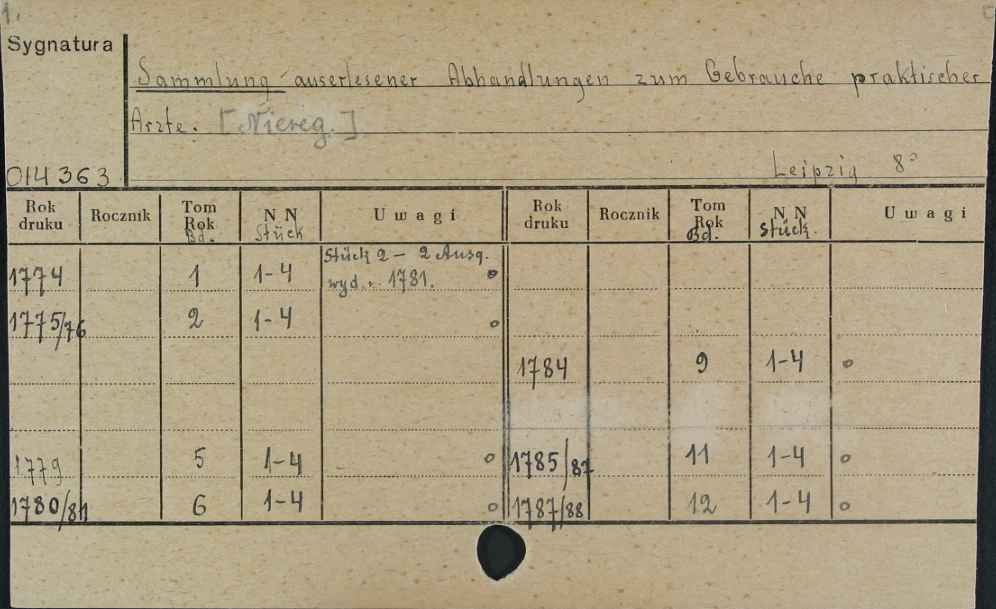 1.
Sygnatura
Sammlung auserlesener Abhandlungen zum Gebrauche praktischer
Arzte. [Niereg.]
014363
Leipzig 8°
Rok druku Rocznik Tom Rok Bd. N N Stück Uwagi Rok druku Rocznik Tom Rok Bd. N N Stück. Uwagi
1774 1 1-4 Stück 2 - 2 Ausg.
wyd. 1781.
1775/76 2 1-4
1784 9 1-4
1779 5 1-4 1785/87 11 1-4
1780/81 6 1-4 1787/88 12 1-4